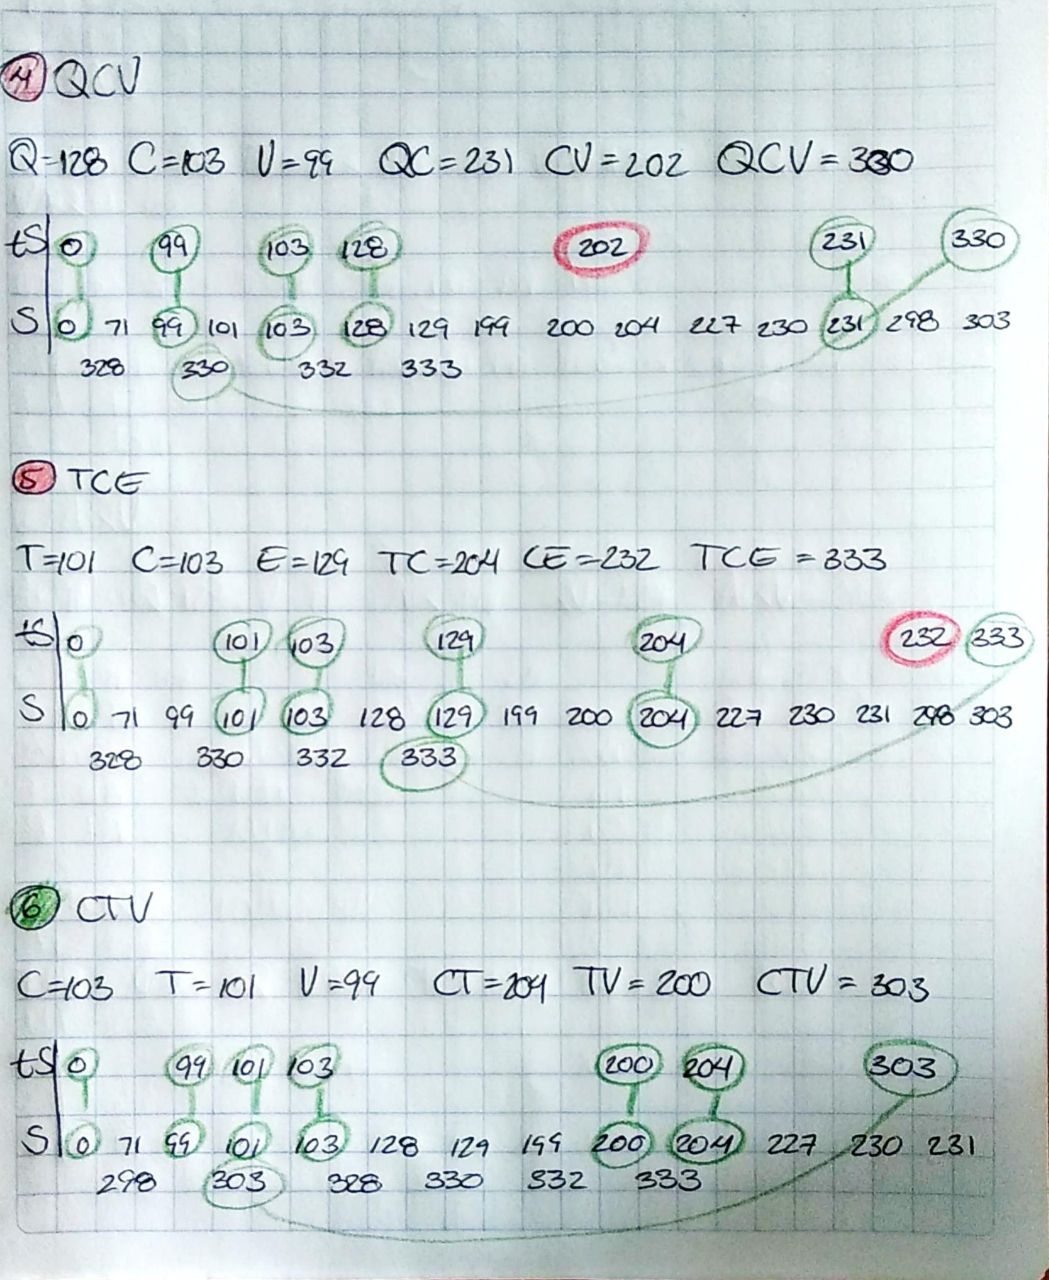 4 QCV
Q=128 C=103 V=99 QC=231 CV=202 QCV=330
tS 0 99 103 128 202 231 330
S 0 71 99 101 103 128 129 199 200 204 227 230 231 298 303
328 330 332 333
5 TCE
T=101 C=103 E=129 TC=204 CE=232 TCE=333
tS 0 101 103 129 204 232 333
S 0 71 99 101 103 128 129 199 200 204 227 230 231 298 303
328 330 332 333
6 CTV
C=103 T=101 V=99 CT=204 TV=200 CTV=303
tS 0 99 101 103 200 204 303
S 0 71 99 101 103 128 129 199 200 204 227 230 231
298 303 328 330 332 333